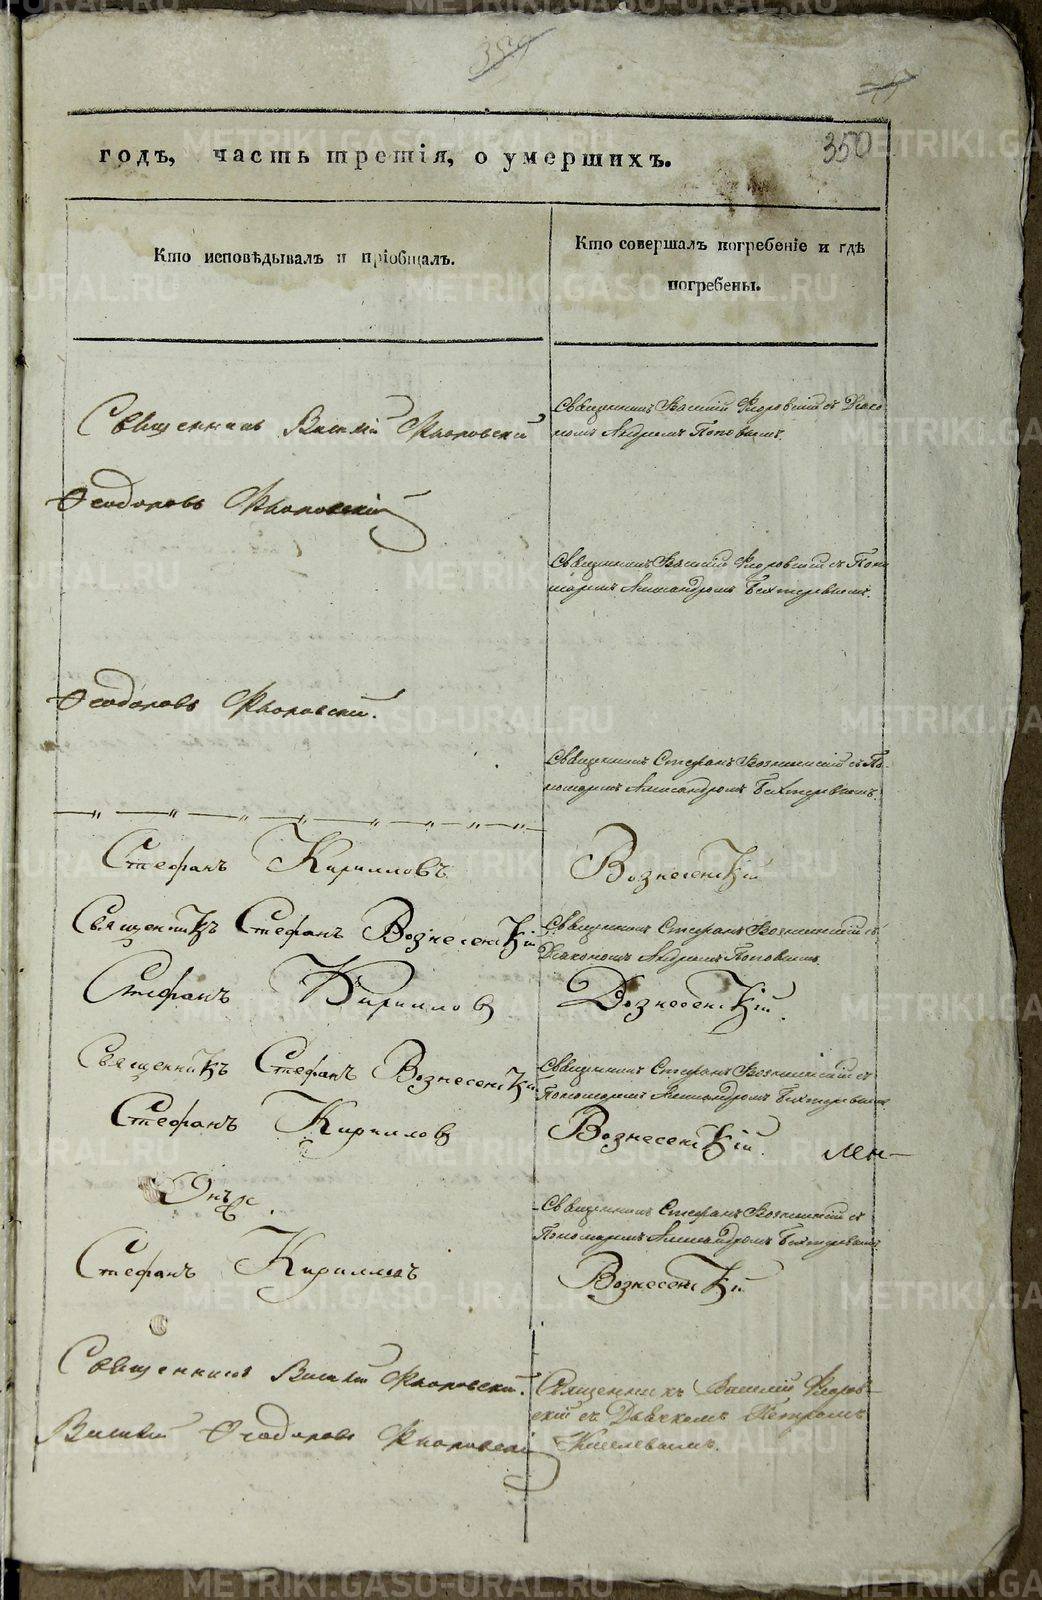 359
350
годъ, часть третія, о умершихъ.
Кто исповѣдывалъ и пріобщалъ.
Кто совершалъ погребеніе и гдѣ
погребены.
Священникъ Василій Флоровскій
Священникъ Василій Флоровскій съ Діако-
номъ Андреемъ Поповымъ.
Ѳеодоровъ Флоровскій
Священникъ Василій Флоровскій съ Поно-
маремъ Александромъ Бехтеревымъ.
Ѳеодоровъ Флоровскій.
Священникъ Стефанъ Вознесенскій съ По-
номаремъ Александромъ Бехтеревымъ.
Стефанъ Кирилловъ Вознесенскій
Священникъ Стефанъ Вознесенскій
Священникъ Стефанъ Вознесенскій съ
Діакономъ Андреемъ Поповымъ.
Стефанъ Кириллов Вознесенскій.
Священникъ Стефанъ Вознесенскій
Священникъ Стефанъ Вознесенскій съ
Пономаремъ Александромъ Бехтеревымъ
Стефанъ Кириллов Вознесенскій.
Онъ же.
Священникъ Стефанъ Вознесенскій съ
Пономаремъ Александромъ Бехтеревымъ.
Стефанъ Кирилловъ Вознесенскій
Священникъ Василій Флоровскій.
Священникъ Василій Флоров-
скій съ Дьячкомъ Петромъ
Киселевымъ.
Василій Ѳеодоровъ Флоровскій
METRIKI.GASO-URAL.RU